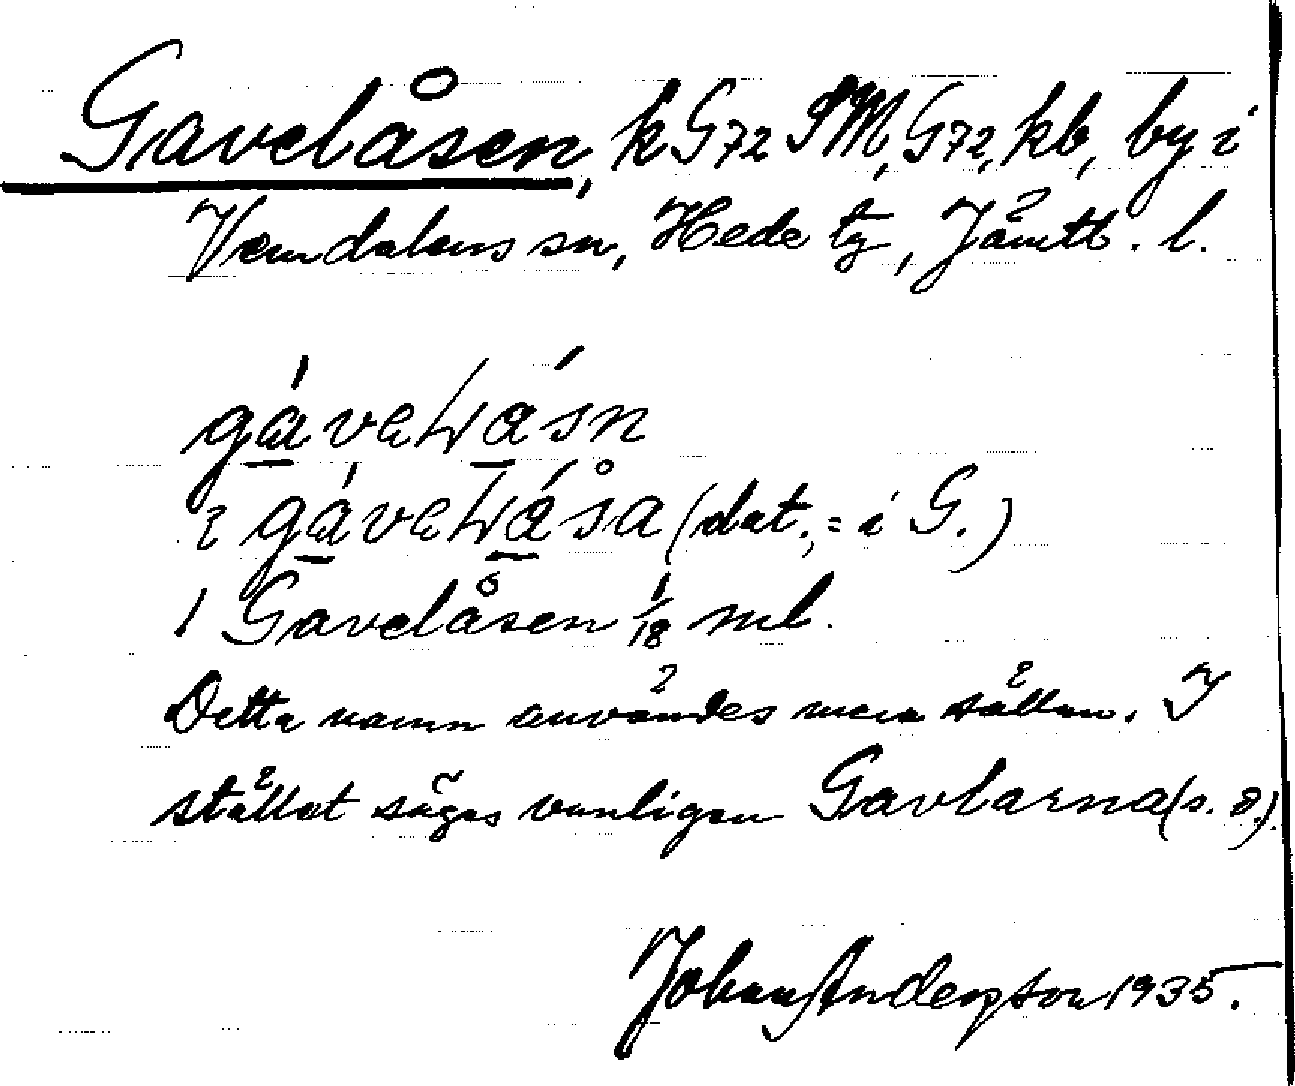 Gavelåsen, k G72 SM, G72, kb, by i
Vemdalens sn, Hede tg, Jämtl. l.
gávelꞎásn
i gávelꞎåsa (dat., = i G.)
1 Gavelåsen 1/18 mtl.
Detta namn användes mera sällan. I
stället säges vanligen Gavlarna (s. d.).
Johan Anderson 1935.